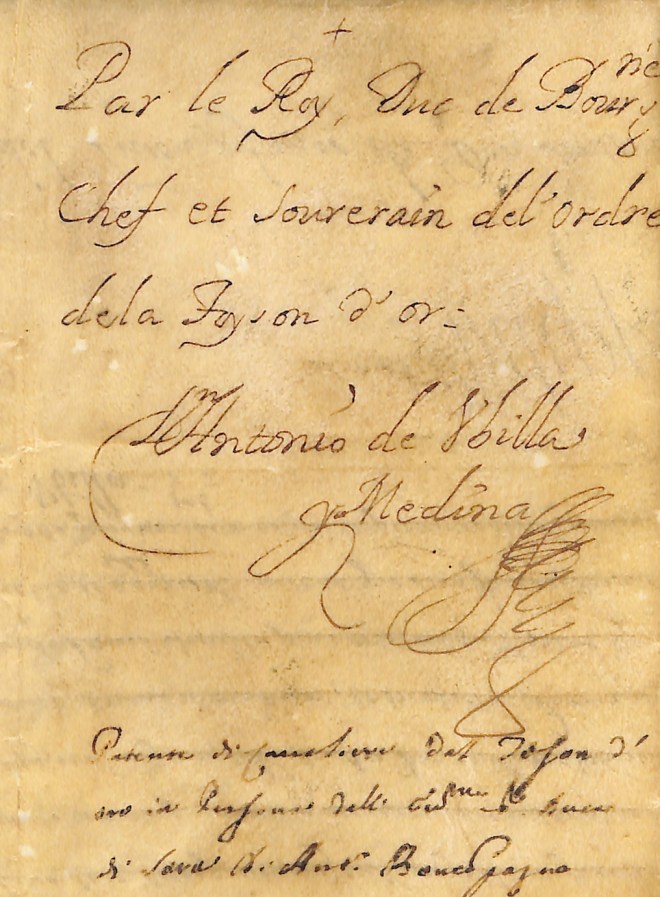 +
Par le Roy, Duc de Bourg.ne
Chef et souverain del'ordre
dela Toyson d'or=
Dn Antonio de Vbilla
y Medina
Patente di Cavaliere del Toson d'
oro in Persona dell' Duca
di Sora D. Ant.o Boncompagno